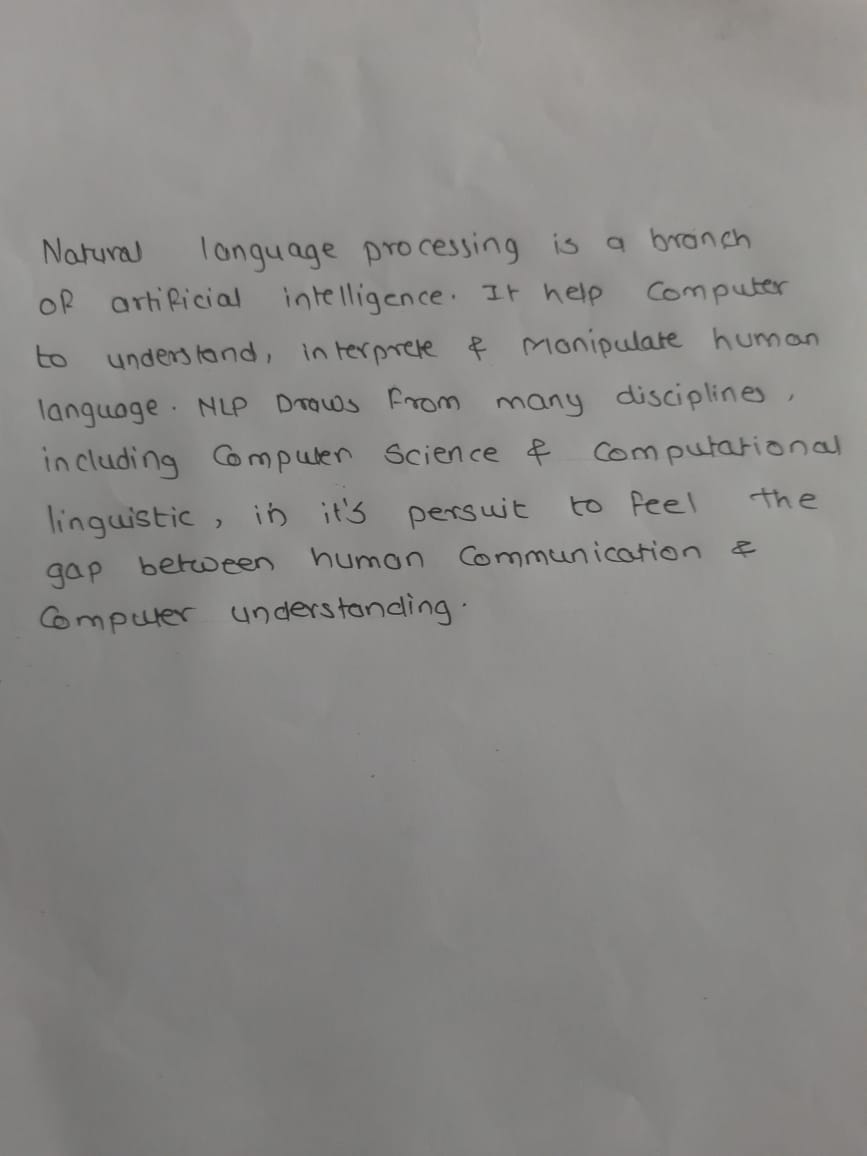 Natural language processing is a branch
of artificial intelligence. It help Computer
to understand, interprete & Manipulate human
language. NLP Draws From many disciplines,
including Computer Science & Computational
linguistic, in it's persuit to feel the
gap between human Communication &
Computer understanding.